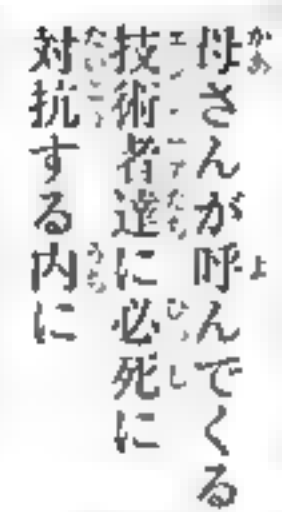 母さんが呼んでくる
技術者達に必死に
対抗する内に